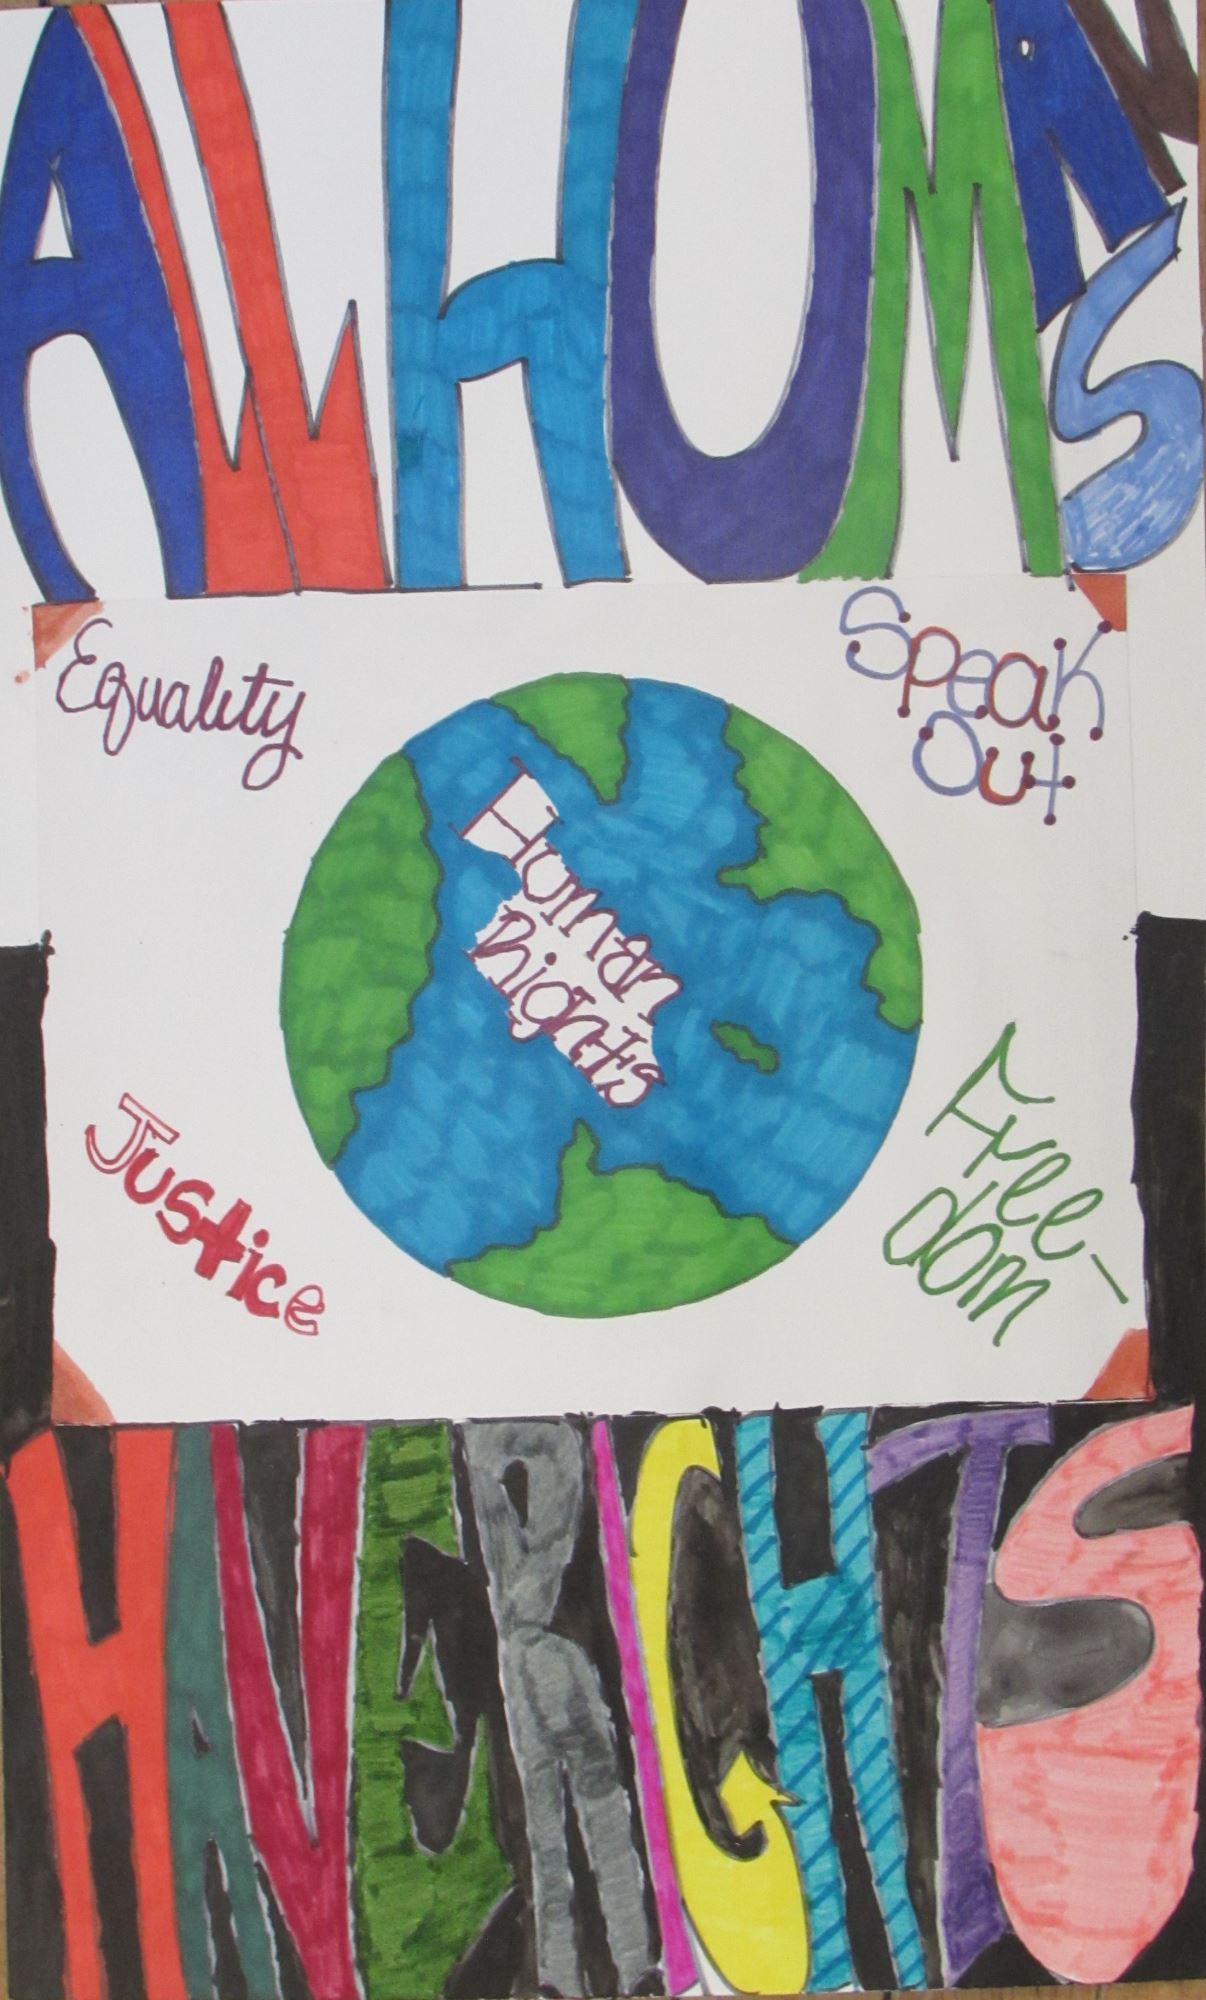 ALL HUMANS
Equality
Speak
Out
Human
Rights
Justice
Free-
dom
HAVE RIGHTS